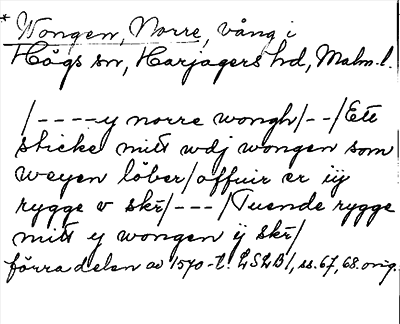 * Wongen, Norre, vång i
Högs sn, Harjagers hd, Malm. l.
/----y norre wongh/--/Ett
sticke mitt wdj wongen som
weyen löber/offuir er iij
rygge v skr/---/Tuende rygge
mitt y wongen ij skr/
förra delen av 1570-t. LSLB, ss. 67, 68. orig.